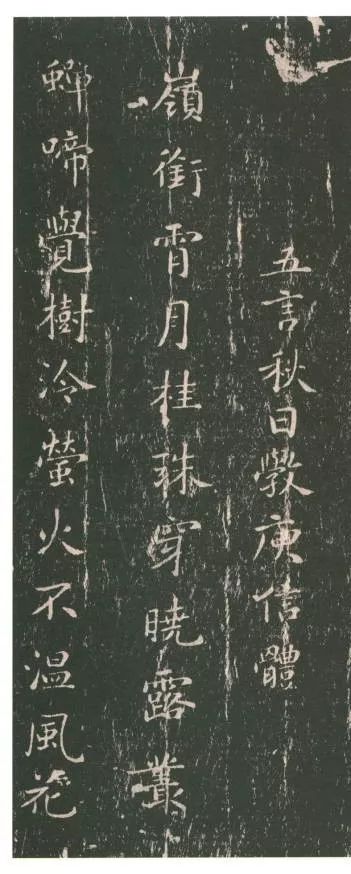 五言秋日斅庾信體
嶺銜霄月桂珠穿曉露叢
蟬啼覺樹冷螢火不温風花